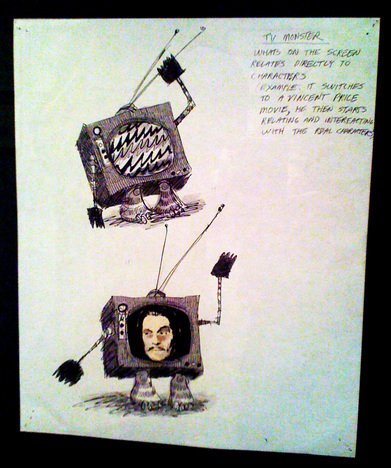 TV MONSTER
WHATS ON THE SCREEN
RELATES DIRECTLY TO
CHARACTERS
EXAMPLE. IT SWITCHES
TO A VINCENT PRICE
MOVIE, HE THEN STARTS
RELATING AND INTEREACTING
WITH THE REAL CHARACTERS